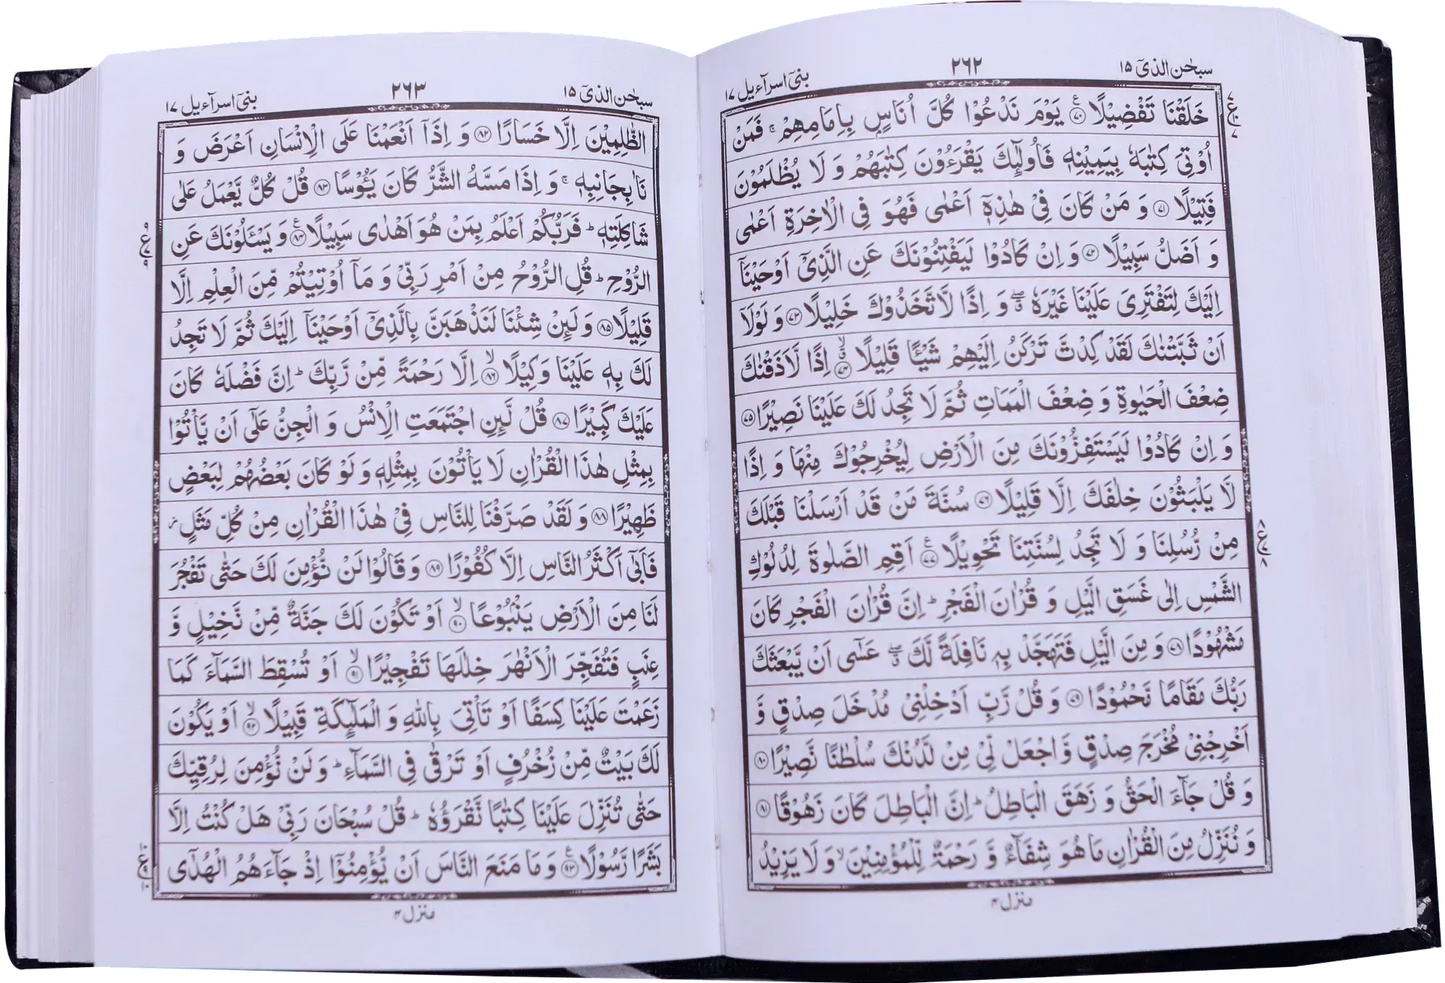 سبحٰن الذیٓ ١٥
٢٦٢
بنیٓ اسرآءیل ١٧
خَلَقۡنَا تَفۡضِیۡلًا ﴿٧٠﴾ یَوۡمَ نَدۡعُوۡا کُلَّ اُنَاسٍۭ بِاِمَامِهِمۡ ۚ فَمَنۡ
اُوۡتِیَ کِتٰبَهٗ بِیَمِیۡنِهٖ فَاُولٰٓئِكَ یَقۡرَءُوۡنَ کِتٰبَهُمۡ وَ لَا یُظۡلَمُوۡنَ
فَتِیۡلًا ﴿٧١﴾ وَ مَنۡ کَانَ فِیۡ هٰذِهٖۤ اَعۡمٰی فَهُوَ فِی الۡاٰخِرَةِ اَعۡمٰی
وَ اَضَلُّ سَبِیۡلًا ﴿٧٢﴾ وَ اِنۡ کَادُوۡا لَیَفۡتِنُوۡنَكَ عَنِ الَّذِیۡۤ اَوۡحَیۡنَاۤ
اِلَیۡكَ لِتَفۡتَرِیَ عَلَیۡنَا غَیۡرَهٗ ٭ۖ وَ اِذًا لَّاتَّخَذُوۡكَ خَلِیۡلًا ﴿٧٣﴾ وَ لَوۡلَاۤ
اَنۡ ثَبَّتۡنٰكَ لَقَدۡ کِدۡتَّ تَرۡکَنُ اِلَیۡهِمۡ شَیۡئًا قَلِیۡلًا ﴿٧٤﴾ اِذًا لَّاَذَقۡنٰكَ
ضِعۡفَ الۡحَیٰوةِ وَ ضِعۡفَ الۡمَمَاتِ ثُمَّ لَا تَجِدُ لَكَ عَلَیۡنَا نَصِیۡرًا ﴿٧٥﴾
وَ اِنۡ کَادُوۡا لَیَسۡتَفِزُّوۡنَكَ مِنَ الۡاَرۡضِ لِیُخۡرِجُوۡكَ مِنۡهَا وَ اِذًا
لَّا یَلۡبَثُوۡنَ خِلٰفَكَ اِلَّا قَلِیۡلًا ﴿٧٦﴾ سُنَّةَ مَنۡ قَدۡ اَرۡسَلۡنَا قَبۡلَكَ
مِنۡ رُّسُلِنَا وَ لَا تَجِدُ لِسُنَّتِنَا تَحۡوِیۡلًا ﴿٧٧﴾ اَقِمِ الصَّلٰوةَ لِدُلُوۡكِ
الشَّمۡسِ اِلٰی غَسَقِ الَّیۡلِ وَ قُرۡاٰنَ الۡفَجۡرِ ؕ اِنَّ قُرۡاٰنَ الۡفَجۡرِ کَانَ
مَشۡهُوۡدًا ﴿٧٨﴾ وَ مِنَ الَّیۡلِ فَتَهَجَّدۡ بِهٖ نَافِلَةً لَّكَ ٭ۖ عَسٰۤی اَنۡ یَّبۡعَثَكَ
رَبُّكَ مَقَامًا مَّحۡمُوۡدًا ﴿٧٩﴾ وَ قُلۡ رَّبِّ اَدۡخِلۡنِیۡ مُدۡخَلَ صِدۡقٍ وَّ
اَخۡرِجۡنِیۡ مُخۡرَجَ صِدۡقٍ وَّ اجۡعَلۡ لِّیۡ مِنۡ لَّدُنۡكَ سُلۡطٰنًا نَّصِیۡرًا ﴿٨٠﴾
وَ قُلۡ جَآءَ الۡحَقُّ وَ زَهَقَ الۡبَاطِلُ ؕ اِنَّ الۡبَاطِلَ کَانَ زَهُوۡقًا ﴿٨١﴾
وَ نُنَزِّلُ مِنَ الۡقُرۡاٰنِ مَا هُوَ شِفَآءٌ وَّ رَحۡمَةٌ لِّلۡمُؤۡمِنِیۡنَ ۙ وَ لَا یَزِیۡدُ
منزل ٤
سبحٰن الذیٓ ١٥
٢٦٣
بنیٓ اسرآءیل ١٧
الظّٰلِمِیۡنَ اِلَّا خَسَارًا ﴿٨٢﴾ وَ اِذَاۤ اَنۡعَمۡنَا عَلَی الۡاِنۡسَانِ اَعۡرَضَ وَ
نَاٰ بِجَانِبِهٖ ۚ وَ اِذَا مَسَّهُ الشَّرُّ کَانَ یَـُٔوۡسًا ﴿٨٣﴾ قُلۡ کُلٌّ یَّعۡمَلُ عَلٰی
شَاکِلَتِهٖ ؕ فَرَبُّکُمۡ اَعۡلَمُ بِمَنۡ هُوَ اَهۡدٰی سَبِیۡلًا ﴿٨٤﴾ وَ یَسۡـَٔلُوۡنَكَ عَنِ
الرُّوۡحِ ؕ قُلِ الرُّوۡحُ مِنۡ اَمۡرِ رَبِّیۡ وَ مَاۤ اُوۡتِیۡتُمۡ مِّنَ الۡعِلۡمِ اِلَّا
قَلِیۡلًا ﴿٨٥﴾ وَ لَئِنۡ شِئۡنَا لَنَذۡهَبَنَّ بِالَّذِیۡۤ اَوۡحَیۡنَاۤ اِلَیۡكَ ثُمَّ لَا تَجِدُ
لَكَ بِهٖ عَلَیۡنَا وَکِیۡلًا ﴿٨٦﴾ اِلَّا رَحۡمَةً مِّنۡ رَّبِّكَ ؕ اِنَّ فَضۡلَهٗ کَانَ
عَلَیۡكَ کَبِیۡرًا ﴿٨٧﴾ قُلۡ لَّئِنِ اجۡتَمَعَتِ الۡاِنۡسُ وَ الۡجِنُّ عَلٰۤی اَنۡ یَّاۡتُوۡا
بِمِثۡلِ هٰذَا الۡقُرۡاٰنِ لَا یَاۡتُوۡنَ بِمِثۡلِهٖ وَ لَوۡ کَانَ بَعۡضُهُمۡ لِبَعۡضٍ
ظَهِیۡرًا ﴿٨٨﴾ وَ لَقَدۡ صَرَّفۡنَا لِلنَّاسِ فِیۡ هٰذَا الۡقُرۡاٰنِ مِنۡ کُلِّ مَثَلٍ ۫
فَاَبٰۤی اَکۡثَرُ النَّاسِ اِلَّا کُفُوۡرًا ﴿٨٩﴾ وَ قَالُوۡا لَنۡ نُّؤۡمِنَ لَكَ حَتّٰی تَفۡجُرَ
لَنَا مِنَ الۡاَرۡضِ یَنۡۢبُوۡعًا ﴿٩٠﴾ اَوۡ تَکُوۡنَ لَكَ جَنَّةٌ مِّنۡ نَّخِیۡلٍ وَّ
عِنَبٍ فَتُفَجِّرَ الۡاَنۡهٰرَ خِلٰلَهَا تَفۡجِیۡرًا ﴿٩١﴾ اَوۡ تُسۡقِطَ السَّمَآءَ کَمَا
زَعَمۡتَ عَلَیۡنَا کِسَفًا اَوۡ تَاۡتِیَ بِاللّٰهِ وَ الۡمَلٰٓئِکَةِ قَبِیۡلًا ﴿٩٢﴾ اَوۡ یَکُوۡنَ
لَكَ بَیۡتٌ مِّنۡ زُخۡرُفٍ اَوۡ تَرۡقٰی فِی السَّمَآءِ ؕ وَ لَنۡ نُّؤۡمِنَ لِرُقِیِّكَ
حَتّٰی تُنَزِّلَ عَلَیۡنَا کِتٰبًا نَّقۡرَؤُهٗ ؕ قُلۡ سُبۡحَانَ رَبِّیۡ هَلۡ کُنۡتُ اِلَّا
بَشَرًا رَّسُوۡلًا ﴿٩٣﴾ وَ مَا مَنَعَ النَّاسَ اَنۡ یُّؤۡمِنُوۡۤا اِذۡ جَآءَهُمُ الۡهُدٰۤی
منزل ٤